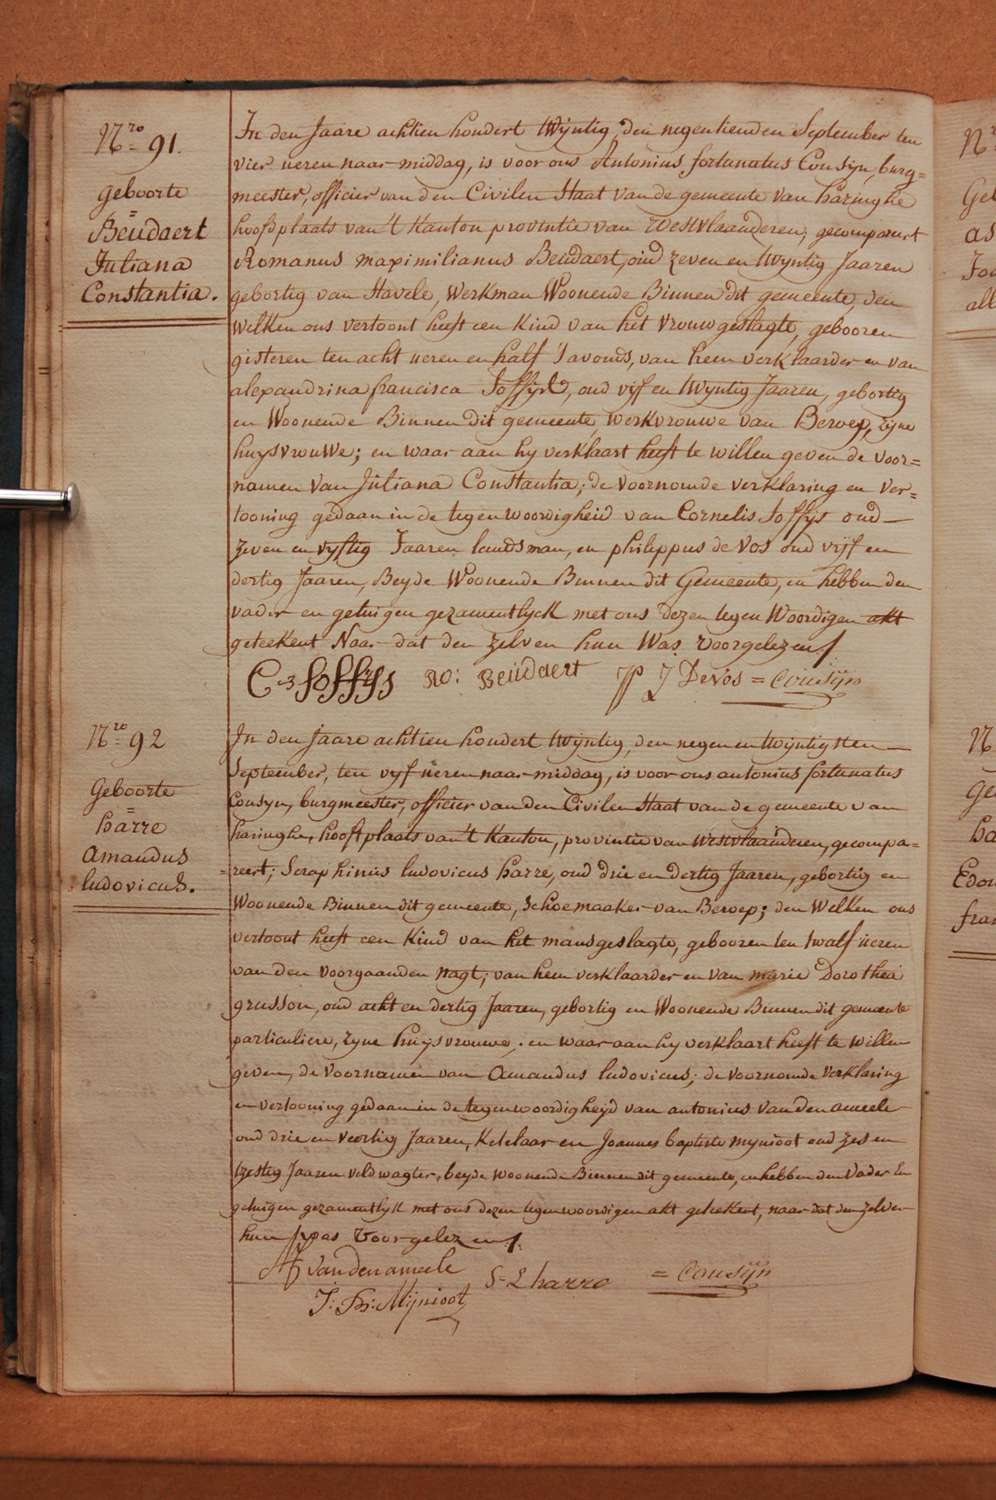 Nro 91.
geboorte
=
Beudaert
Juliana
Constantia.
In den Jaare achtien hondert twyntig, den negentienden September ten
vier ueren naar middag, is voor ons Antonius fortunatus Cousyn, burg=
meester, officier van den Civilen Staat van de gemeente van haringhe
hoofdplaats van 't Kanton provintie van Westvlaanderen, gecompareert
Romanus maximilianus Beudaert, oud zeven en twyntig Jaaren
gebortig van Stavele, Werkman Woonende Binnen dit gemeente, den
Welken ons vertoont heeft een Kind van het vrouwgeslagte, gebooren
gisteren ten acht ueren en half S'avonds, van hem verklaarder en van
alexandrina francisca Soffys, oud vijf en twyntig Jaaren, gebortig
en Woonende Binnen dit gemeente Werkvrouwe van Beroep, zyne
huysvrouwe; en waar aan hy verklaart heeft te willen geven de voor=
namen van Juliana Constantia; de voornoemde verklaring en ver=
tooning gedaan in de tegenwoordigheid van Cornelis Soffys oud
zeven en vyftig Jaaren landsman, en philippus de Vos oud vijf en
dertig Jaaren, Beyde Woonende Binnen dit Gemeente, en hebben den
vader en getuigen gezamentlyck met ons dezen tegen Woordigen akt
geteekent Naar dat den zelven hun Was voorgelezen
C=J Soffys Ro: Beudaert J DeVos = Cousijn
Nro 92
Geboorte
=
harre
Amandus
ludovicus.
In den jaare achtien hondert twyntig, den negen en twyntigsten
September, ten vyf ueren naar middag, is voor ons antonius fortunatus
Cousyn, burgmeester, officier van den Civilen Staat van de gemeente van
haringhe, hooftplaats van 't Kanton, provintie van Westvlaanderen, gecompa=
=reert; Seraphinus ludovicus harre, oud drie en dertig Jaaren, gebortig en
Woonende Binnen dit gemeente, Schoemaaker van Beroep; den Welken ons
vertoont heeft een Kind van het mansgeslagte, gebooren ten twalf ueren
van den voorgaanden nagt; van hem verklaarder en van marie Dorothea
grusson, oud acht en dertig Jaaren, gebortig en Woonende Binnen dit gemeente
particuliere, zyne huysvrouwe, en waar aan hy verklaart heeft te willen
geven, de voornamen van Amandus ludovicus; de voornoemde verklaring
en vertooning gedaan in de tegenwoordigheyd van antonius vandenameele
oud drie en veertig Jaaren, Ketelaar en Joannes baptiste mynioot oud zes en
tzestig Jaaren veldwagter, beyde woonende Binnen dit gemeente, en hebben den Vader En
getuigen gezamentlyk met ons dezen tegenwoordigen akt geteekent, naar dat den zelven
hun was Voorgelezen
vandenameele S=L harre = Cousijn
J: Bt: Mijnioot